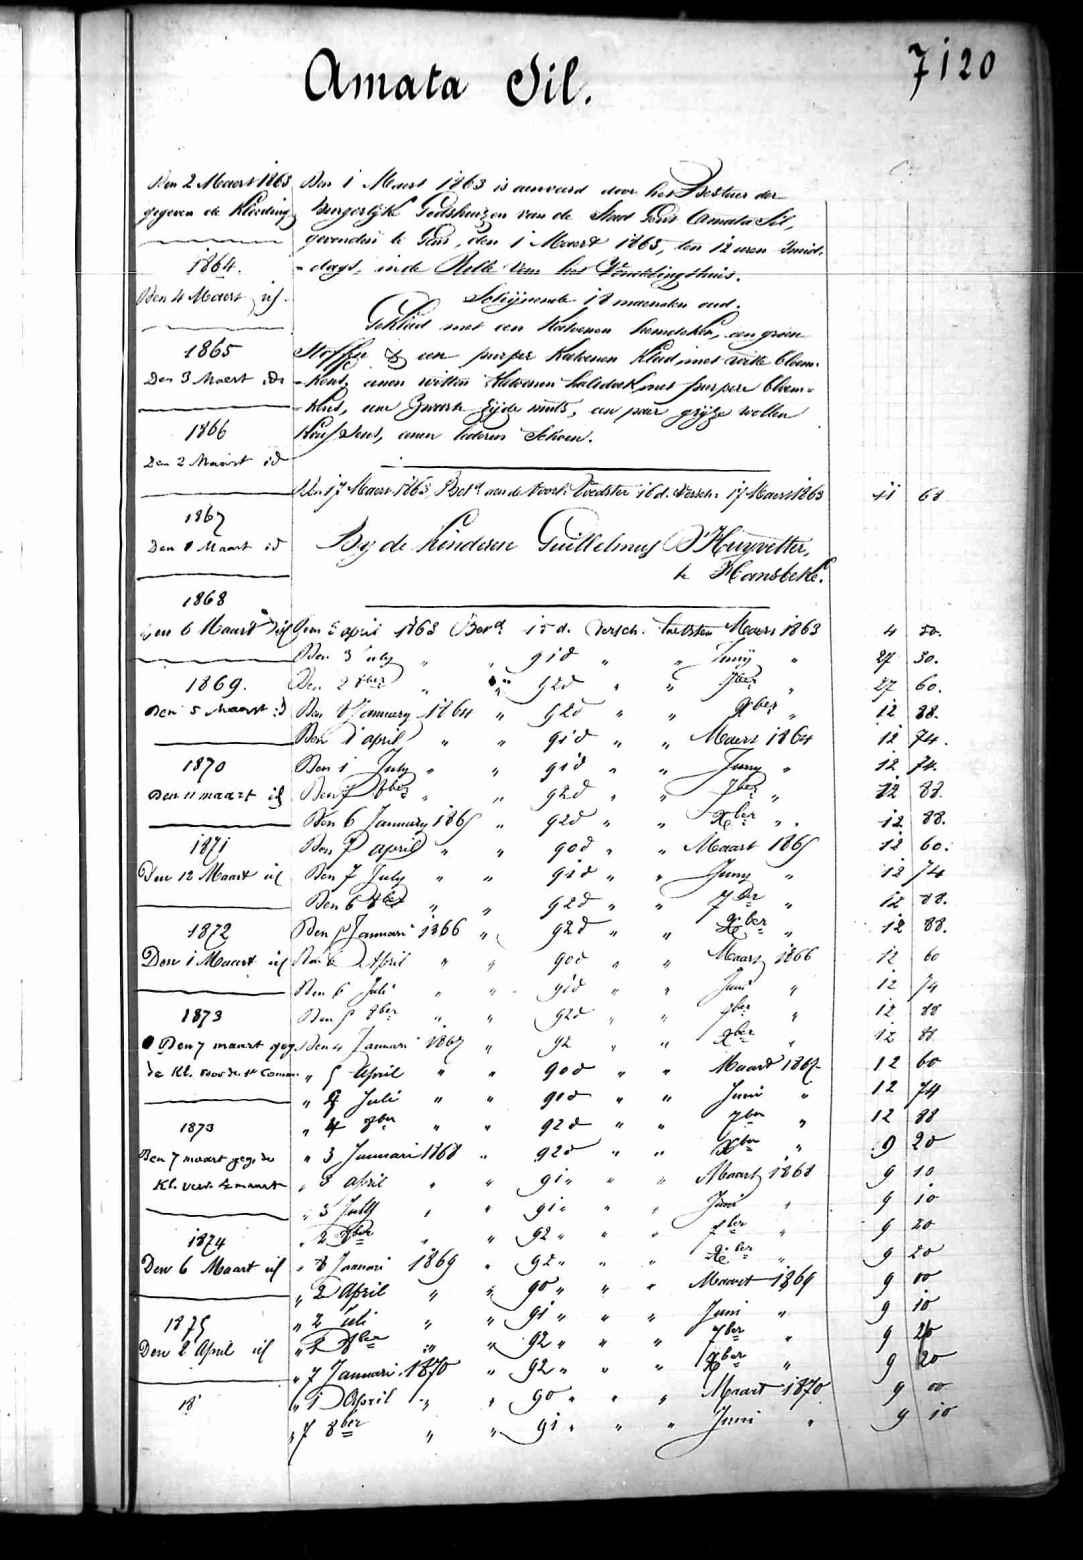 7120
Amata Sil.
Den 2 Maert 1863
gegeven de Kleeding
1864.
Den 4 Maert id.
1865
Den 3 Maert id
1866
Den 2 Maart id
1867
Den 8 Maart id
1868
Den 6 Maart id
1869.
Den 5 Maart id
1870
Den 11 maart id
1871
Den 12 Maart id
1872
Den 1 Maart id
1873
Den 7 maart geg.
de Kl. voor de 1e Comm.
1873
Den 7 maart geg. de
Kl. verv. maart
1874
Den 6 Maart id
1875
Den 2 April id
18
Den 1 Maert 1863 is aenveerd door het Bestuer der
Burgerlijke Godshuizen van de Stad Gend Amata Sil,
gevonden te Gend, den 1 Maert 1863, ten 12 uren smid-
-dags, in de Rolle van het Vondelingshuis.
Schijnende 18 maenden oud.
Gekleed met een Katoenen hemdeken, een groen
Stoffe & een purper Katoenen Kleed met witte bloem-
-kens, eenen witten Katoenen halsdoek met purpere bloem-
-kens, eene zwarte zijde muts, een paer grijze wollen
Koussens, eenen lederen Schoen.
Den 17 Maert 1863 Betd aen de Voorl. Voedster 16 d. Versch. 17 Maert 1863 11 68
By de Kinderen Guillelmus D'Huyvetter,
te Hansbeke.
Den 5 april 1863 Betd 15 d. Versch. laetsten Maert 1863 4 50.
Den 3 July " " 91 d " " Junij " 27 30.
Den 2 8ber " " 92 d " " 7ber " 27 60.
Den 8 January 1864 " 92 d " " Xber " 12 88.
Den 1 april " " 91 d " " Maert 1864 12 74.
Den 1 July " " 91 d " " Juny " 12 74.
Den 7 8ber " " 92 d " " 7ber " 12 88.
Den 6 January 1865 " 92 d " " Xber " 12 88.
Den 7 april " " 90 d " " Maart 1865 12 60.
Den 7 July " " 91 d " " Juny " 12 74
Den 6 8ber " " 92 d " " 7ber " 12 88.
Den 5 Januari 1866 " 92 d " " Xber " 12 88.
Den 6 April " " 90 d " " Maart 1866 12 60
Den 6 Juli " " 91 d " " Juni " 12 74
Den 5 8ber " " 92 d " " 7ber " 12 88
Den 4 Januari 1867 " 92 " " Xber " 12 88
" 5 April " " 90 d " " Maart 1867 12 60
" 2 Juli " " 91 d " " Juni " 12 74
" 4 8ber " " 92 d " " 7ber " 12 88
" 3 Januari 1868 " 92 d " " Xber " 9 20
" 3 april " " 91 " " " Maart 1868 9 10
" 3 July " " 91 " " " Juni " 9 10
" 2 8ber " " 92 " " " 7ber " 9 20
" 8 Januari 1869 " 92 " " " Xber " 9 20
" 2 April " " 90 " " " Maart 1869 9 00
" 2 Juli " " 91 " " " Juni " 9 10
" 2 8ber " " 92 " " " 7ber " 9 20
" 7 Januari 1870 " 92 " " " Xber " 9 20
" 1 April " " 90 " " " Maart 1870 9 00
" 7 8ber " " 91 " " " Juni " 9 10